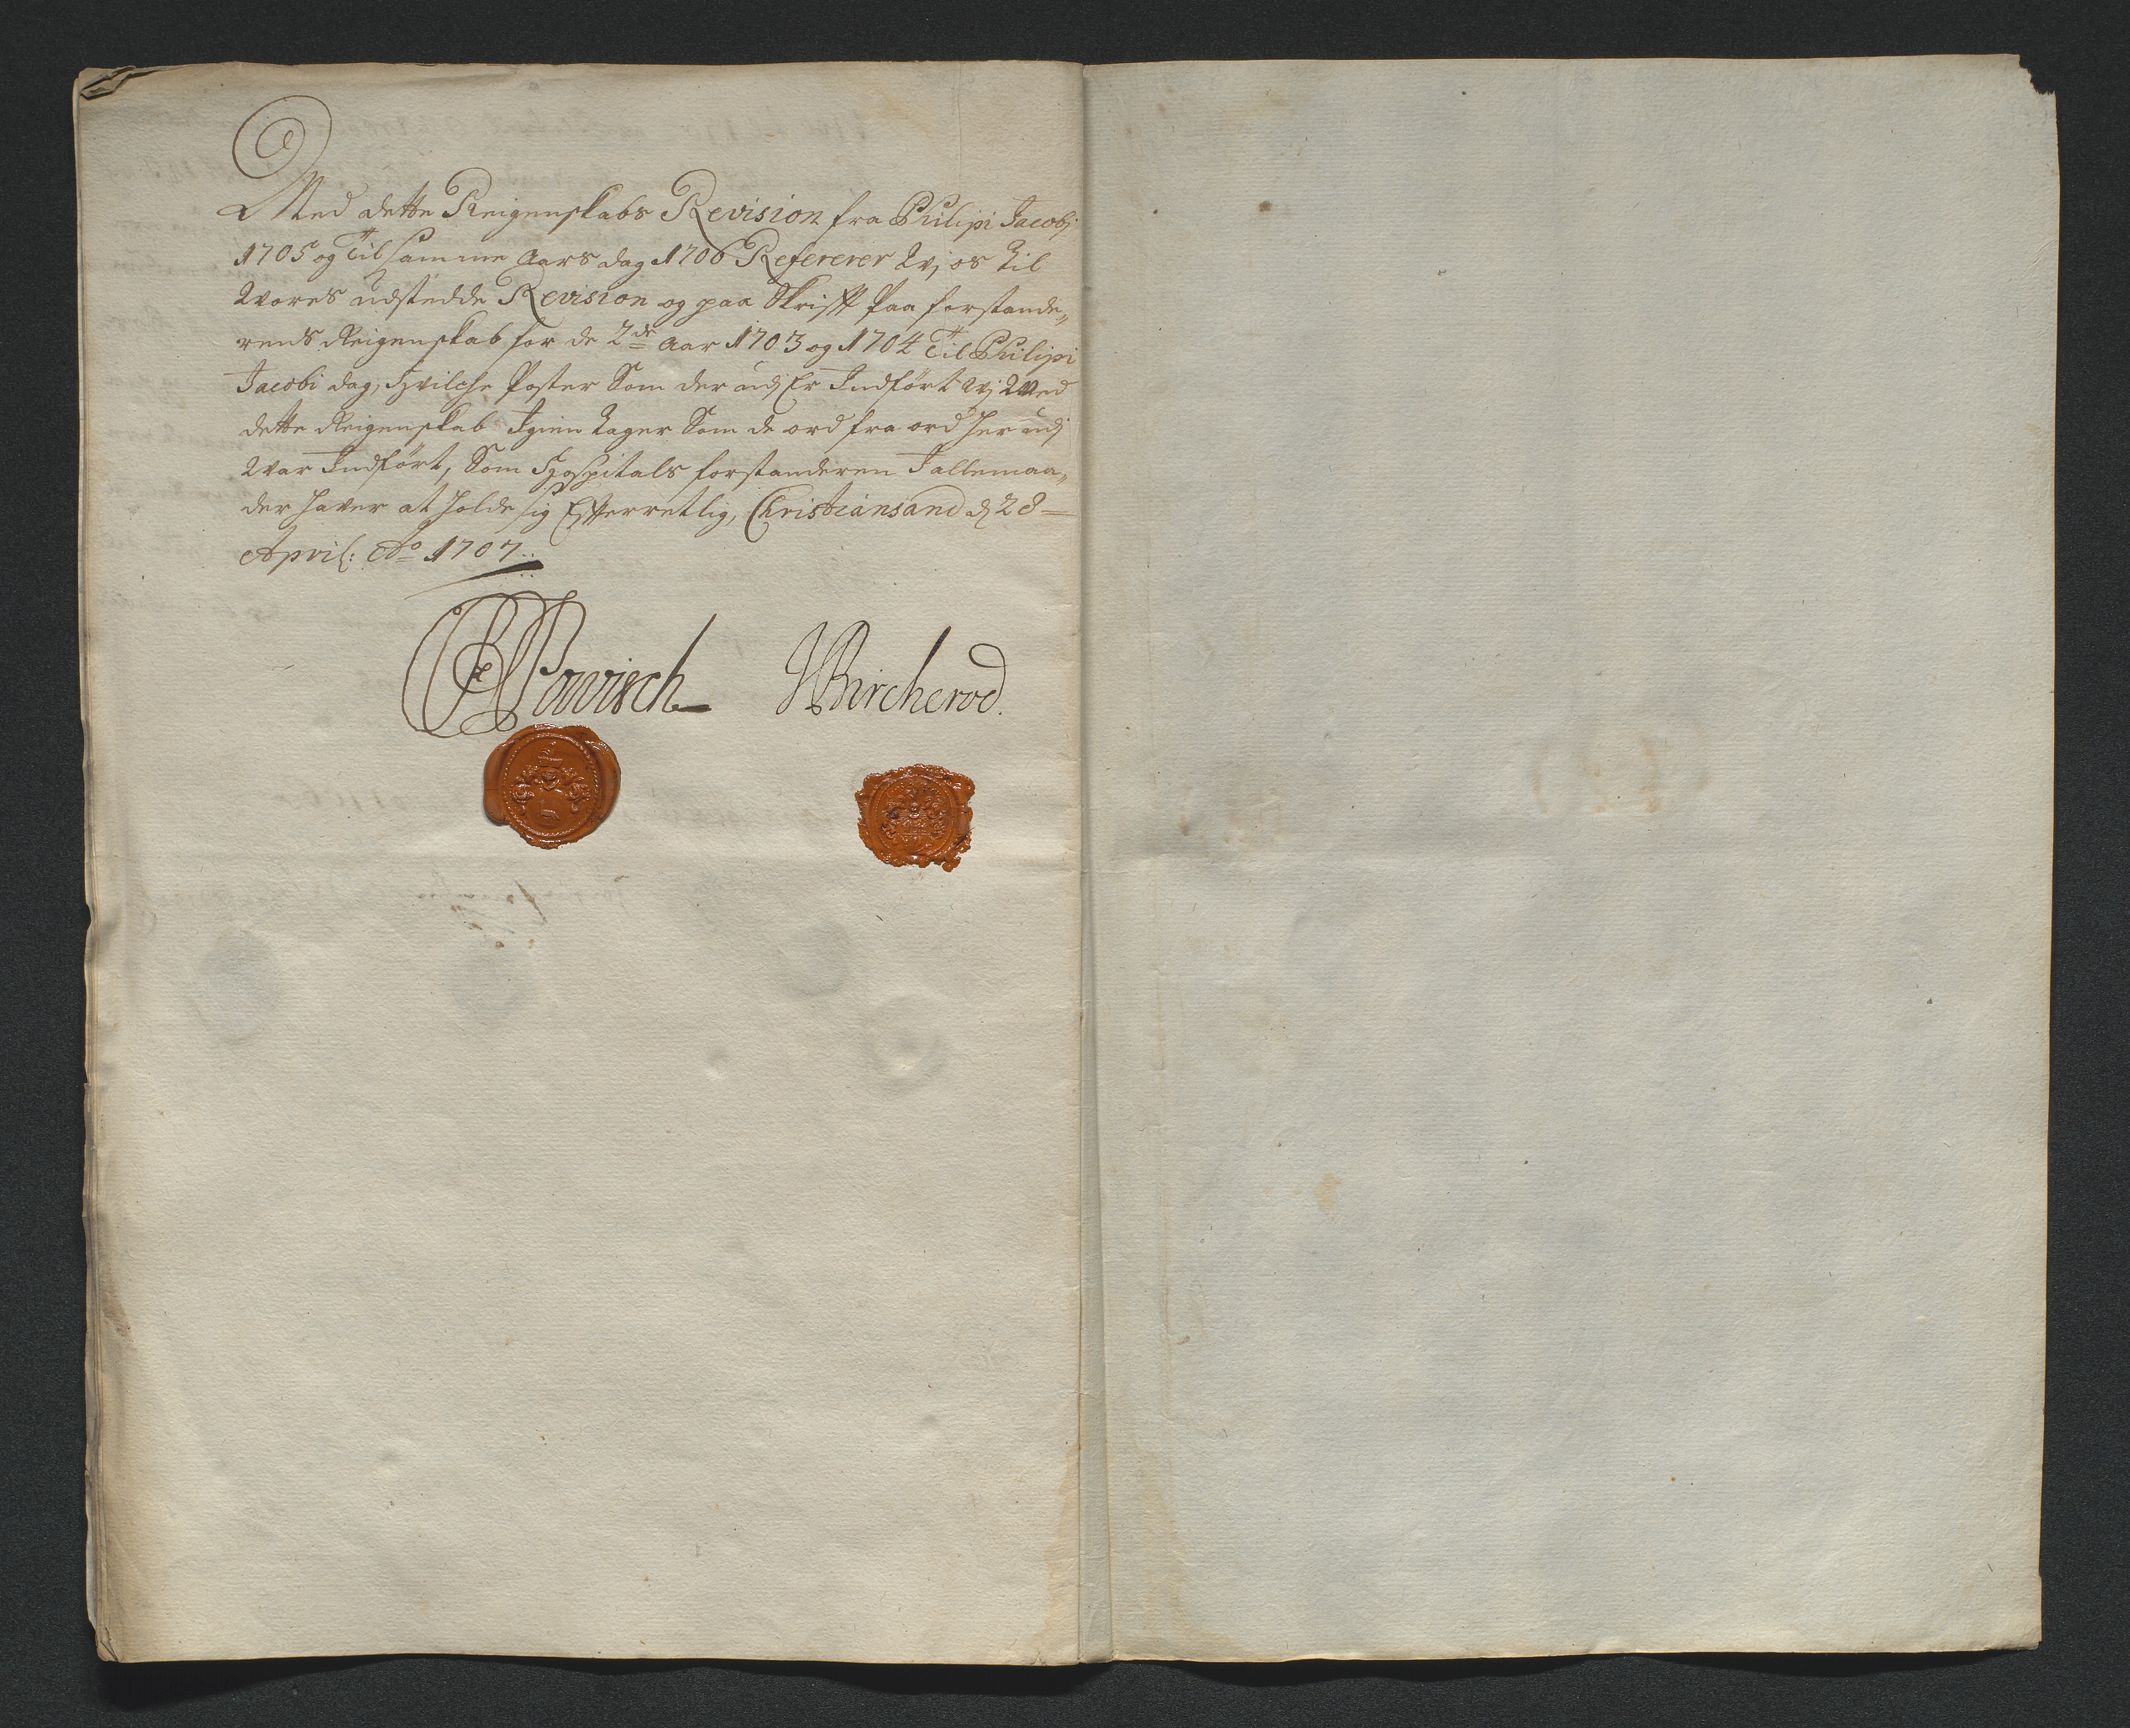 Med dette Reigenskabs Revision fra Philipi Jacobj
1705 og Til samme Aars dag 1706 Refererer Wj os til
Wores udstedde Revision og paa Skrifft Paa forstande„
rens Reigenskab for de 2de Aar 1703 og 1704 Til Philipi
Jacobi dag, Hvilche Poster Som der udj Er Indført wj Med
dette Reigenskab Igien tager Som de ord fra ord her udj
War Indført, Som Hospitals forstanderen J allemaa„
der haver at holde sig Efterretlig, Christiansand d 28
April: Ao 1707
Powisch J Bircherod.